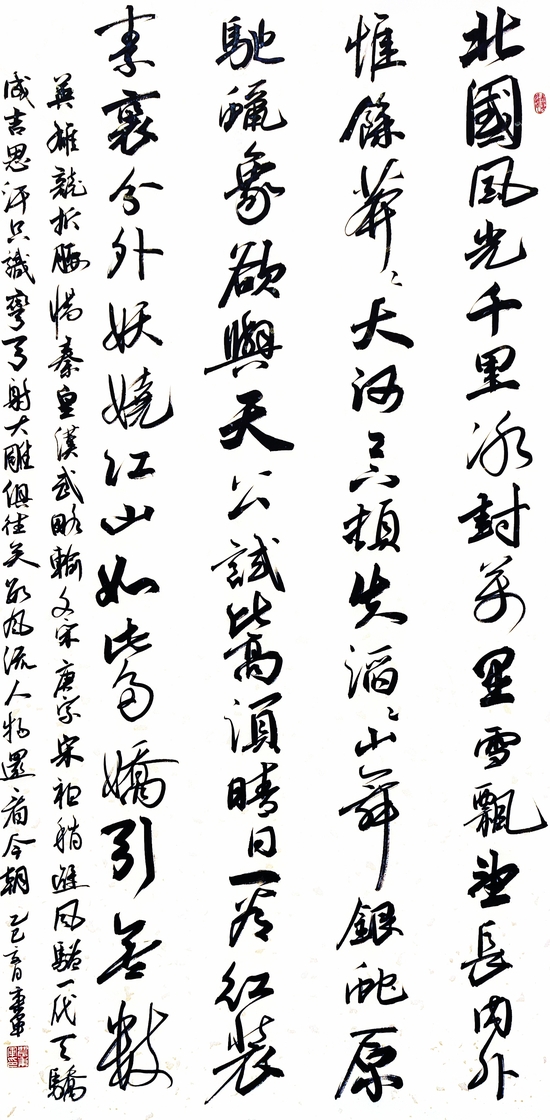 北國風光千里冰封萬里雪飄望長内外
惟餘莽〻大河上下頓失滔〻山舞銀蛇原
馳蠟象欲與天公試比高須晴日一看紅裝
素裹分外妖嬈江山如此多嬌引無數
英雄競折腰惜秦皇漢武略輸文采唐宗宋祖稍遜風騷一代天驕
成吉思汗只識彎弓射大雕俱往矣數風流人物還看今朝 乙巳